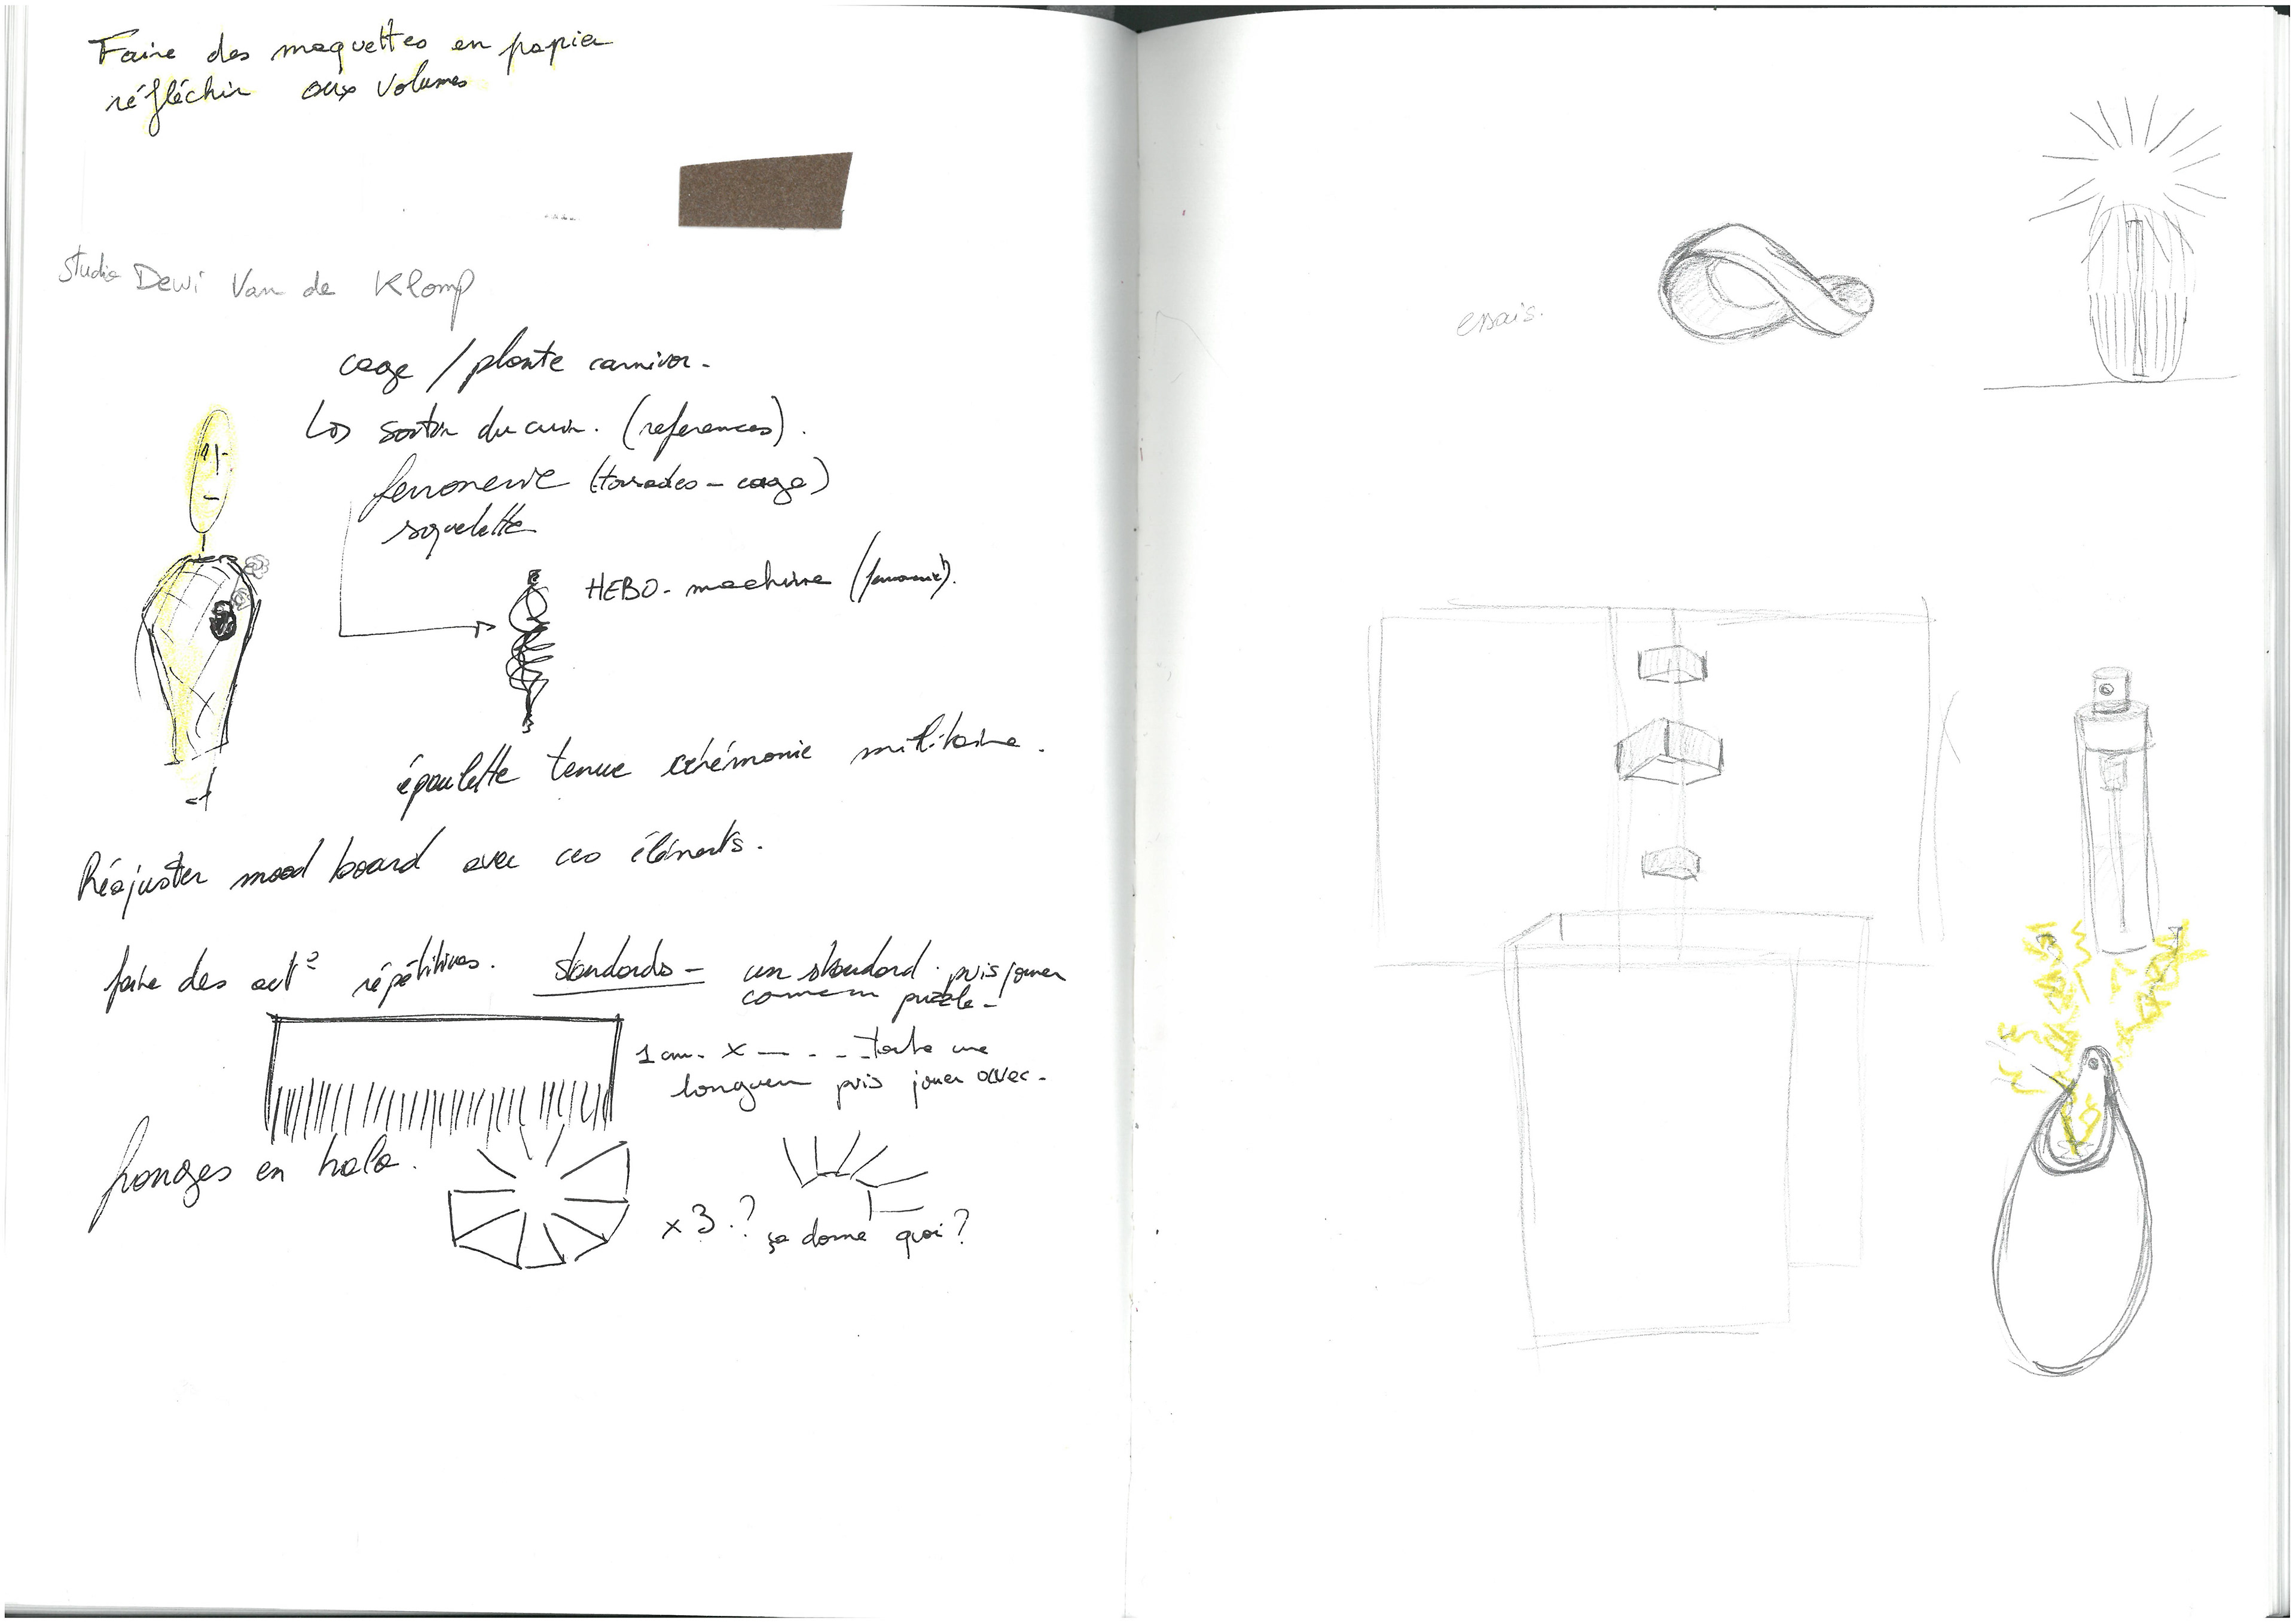 Faire des maquettes en papier
réfléchir aux volumes
studio Dewi Van de Klomp
cage / plante carnivor.
↳ sortir du cuir. (references).
ferronerie (torsades - cage)
squelette
HEBO - machine
épaulette tenue cérémonie militaire.
Réajuster mood board avec ces éléments.
faire des act° répétitives. standards - un standard. puis jouer
comme un puzzle -
1 cm. x — . . . toute une
longueur puis jouer avec -
franges en halo.
x 3 . ? ça donne quoi ?
essais.